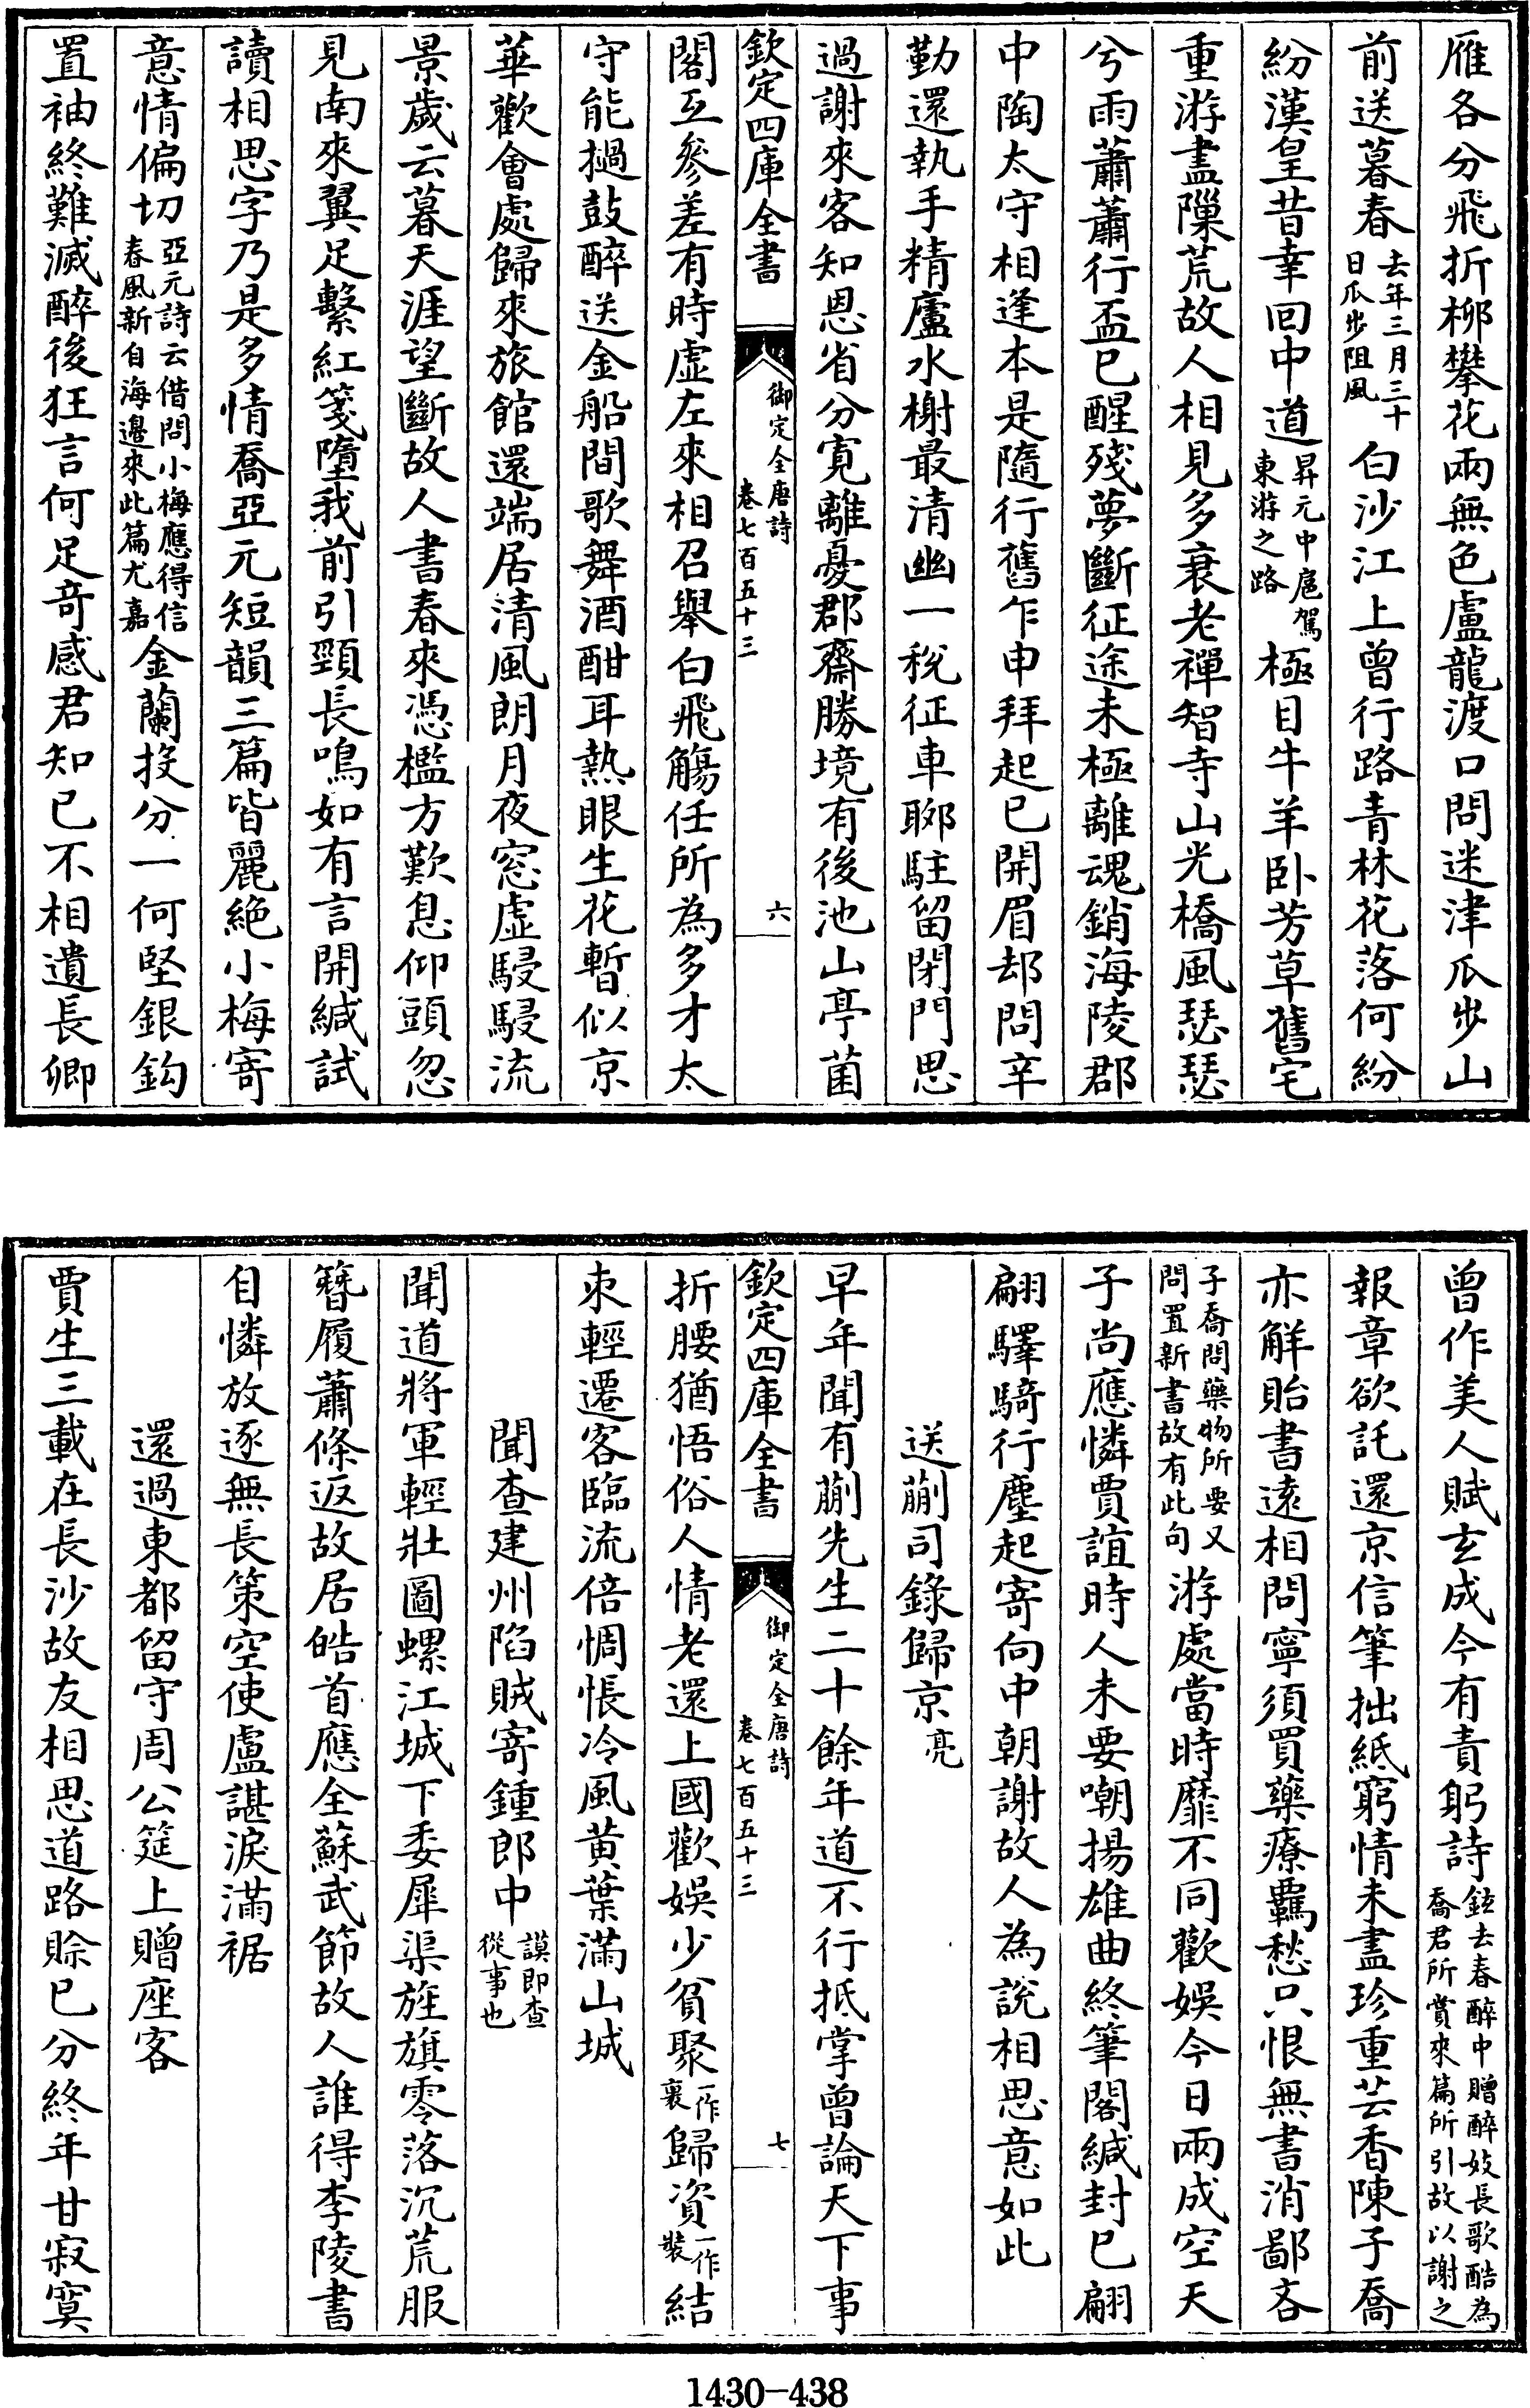 雁各分飛折柳攀花兩無色盧龍渡口問迷津瓜步山
前送暮春去年三月三十日瓜步阻風白沙江上曾行路青林花落何紛
紛漢皇昔幸回中道昇元中扈駕東游之路極目牛羊卧芳草舊宅
重游盡隟荒故人相見多衰老禪智寺山光橋風瑟瑟
兮雨蕭蕭行盃已醒殘夢斷征途未極離魂銷海陵郡
中陶太守相逢本是隨行舊乍申拜起已開眉却問辛
勤還執手精廬水榭最清幽一稅征車聊駐留閉門思
過謝來客知恩省分寛離憂郡齋勝境有後池山亭菌
欽定四庫全書 御定全唐詩 卷七百五十三 六
閣互參差有時虛左來相召舉白飛觴任所為多才太
守能撾鼓醉送金船間歌舞酒酣耳熱眼生花暫似京
華歡會處歸來旅館還端居清風朗月夜窓虛駸駸流
景歲云暮天涯望斷故人書春來憑檻方歎息仰頭忽
見南來翼足繫紅箋墮我前引頸長鳴如有言開緘試
讀相思字乃是多情喬亞元短韻三篇皆麗絶小梅寄
意情偏切亞元詩云借問小梅應得信春風新自海邊來此篇尤嘉金蘭投分一何堅銀鈎
置袖終難滅醉後狂言何足奇感君知已不相遺長卿
曾作美人賦玄成今有責躬詩鉉去春醉中贈醉妓長歌酷為喬君所賞來篇所引故以謝之
報章欲託還京信筆拙紙窮情未盡珍重芸香陳子喬
亦觧貽書遠相問寧須買藥療羈愁只恨無書消鄙吝
子喬問藥物所要又問置新書故有此句游處當時靡不同歡娛今日兩成空天
子尚應憐賈誼時人未要嘲揚雄曲終筆閣緘封已翩
翩驛騎行塵起寄向中朝謝故人為說相思意如此
送蒯司錄歸京亮
早年聞有蒯先生二十餘年道不行抵掌曾論天下事
欽定四庫全書 御定全唐詩 卷七百五十三 七
折腰猶悟俗人情老還上國歡娛少貧聚一作裹歸資一作裝結
束輕遷客臨流倍惆悵冷風黄葉滿山城
聞查建州陷賊寄鍾郎中謨即查從事也
聞道將軍輕壯圖螺江城下委犀渠旌旗零落沉荒服
簪履蕭條返故居皓首應全蘇武節故人誰得李陵書
自憐放逐無長策空使盧諶淚滿裾
還過東都留守周公筵上贈座客
賈生三載在長沙故友相思道路賒已分終年甘寂寞
1430-438